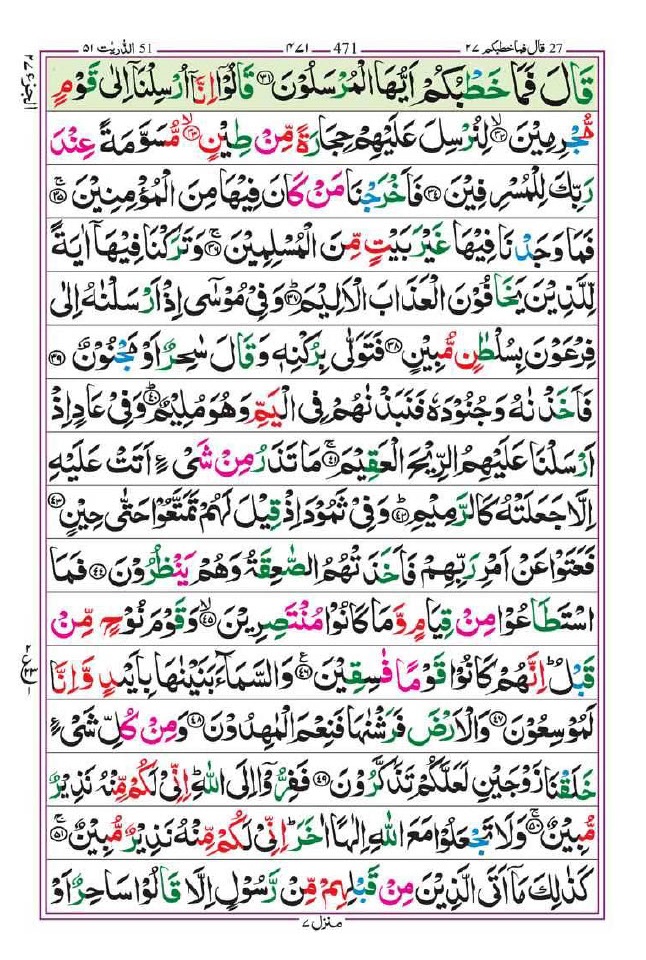 27 قال فما خطبكم ٢٧ 471 ٤٧١ 51 الذّٰريٰت ٥١
الجزء ٢٧
قَالَ فَمَا خَطْبُكُمْ اَيُّهَا الْمُرْسَلُوْنَ ﴿٣١﴾ قَالُوْۤا اِنَّاۤ اُرْسِلْنَاۤ اِلٰى قَوْمٍ
مُّجْرِمِيْنَ ﴿٣٢﴾ۙ لِنُرْسِلَ عَلَيْهِمْ حِجَارَةً مِّنْ طِيْنٍ ﴿٣٣﴾ۙ مُّسَوَّمَةً عِنْدَ
رَبِّكَ لِلْمُسْرِفِيْنَ ﴿٣٤﴾ فَاَخْرَجْنَا مَنْ كَانَ فِيْهَا مِنَ الْمُؤْمِنِيْنَ ﴿٣٥﴾ۚ
فَمَا وَجَدْنَا فِيْهَا غَيْرَ بَيْتٍ مِّنَ الْمُسْلِمِيْنَ ﴿٣٦﴾ۚ وَتَرَكْنَا فِيْهَاۤ اٰيَةً
لِّلَّذِيْنَ يَخَافُوْنَ الْعَذَابَ الْاَلِيْمَ ﴿٣٧﴾ؕ وَفِيْ مُوْسٰۤى اِذْ اَرْسَلْنٰهُ اِلٰى
فِرْعَوْنَ بِسُلْطٰنٍ مُّبِيْنٍ ﴿٣٨﴾ فَتَوَلّٰى بِرُكْنِهٖ وَقَالَ سٰحِرٌ اَوْ مَجْنُوْنٌ ﴿٣٩﴾
فَاَخَذْنٰهُ وَجُنُوْدَهٗ فَنَبَذْنٰهُمْ فِى الْيَمِّ وَهُوَ مُلِيْمٌ ﴿٤٠﴾ؕ وَفِيْ عَادٍ اِذْ
اَرْسَلْنَا عَلَيْهِمُ الرِّيْحَ الْعَقِيْمَ ﴿٤١﴾ۚ مَا تَذَرُ مِنْ شَيْءٍ اَتَتْ عَلَيْهِ
اِلَّا جَعَلَتْهُ كَالرَّمِيْمِ ﴿٤٢﴾ؕ وَفِيْ ثَمُوْدَ اِذْ قِيْلَ لَهُمْ تَمَتَّعُوْا حَتّٰى حِيْنٍ ﴿٤٣﴾
فَعَتَوْا عَنْ اَمْرِ رَبِّهِمْ فَاَخَذَتْهُمُ الصّٰعِقَةُ وَهُمْ يَنْظُرُوْنَ ﴿٤٤﴾ فَمَا
اسْتَطَاعُوْا مِنْ قِيَامٍ وَّمَا كَانُوْا مُنْتَصِرِيْنَ ﴿٤٥﴾ۙ وَقَوْمَ نُوْحٍ مِّنْ
قَبْلُ ؕ اِنَّهُمْ كَانُوْا قَوْمًا فٰسِقِيْنَ ﴿٤٦﴾ۧ وَالسَّمَآءَ بَنَيْنٰهَا بِاَيْىدٍ وَّاِنَّا
لَمُوْسِعُوْنَ ﴿٤٧﴾ وَالْاَرْضَ فَرَشْنٰهَا فَنِعْمَ الْمٰهِدُوْنَ ﴿٤٨﴾ وَمِنْ كُلِّ شَيْءٍ
خَلَقْنَا زَوْجَيْنِ لَعَلَّكُمْ تَذَكَّرُوْنَ ﴿٤٩﴾ فَفِرُّوْۤا اِلَى اللّٰهِ ؕ اِنِّيْ لَكُمْ مِّنْهُ نَذِيْرٌ
مُّبِيْنٌ ﴿٥٠﴾ۚ وَلَا تَجْعَلُوْا مَعَ اللّٰهِ اِلٰهًا اٰخَرَ ؕ اِنِّيْ لَكُمْ مِّنْهُ نَذِيْرٌ مُّبِيْنٌ ﴿٥١﴾ۚ
كَذٰلِكَ مَاۤ اَتَى الَّذِيْنَ مِنْ قَبْلِهِمْ مِّنْ رَّسُوْلٍ اِلَّا قَالُوْا سَاحِرٌ اَوْ
منزل ٧